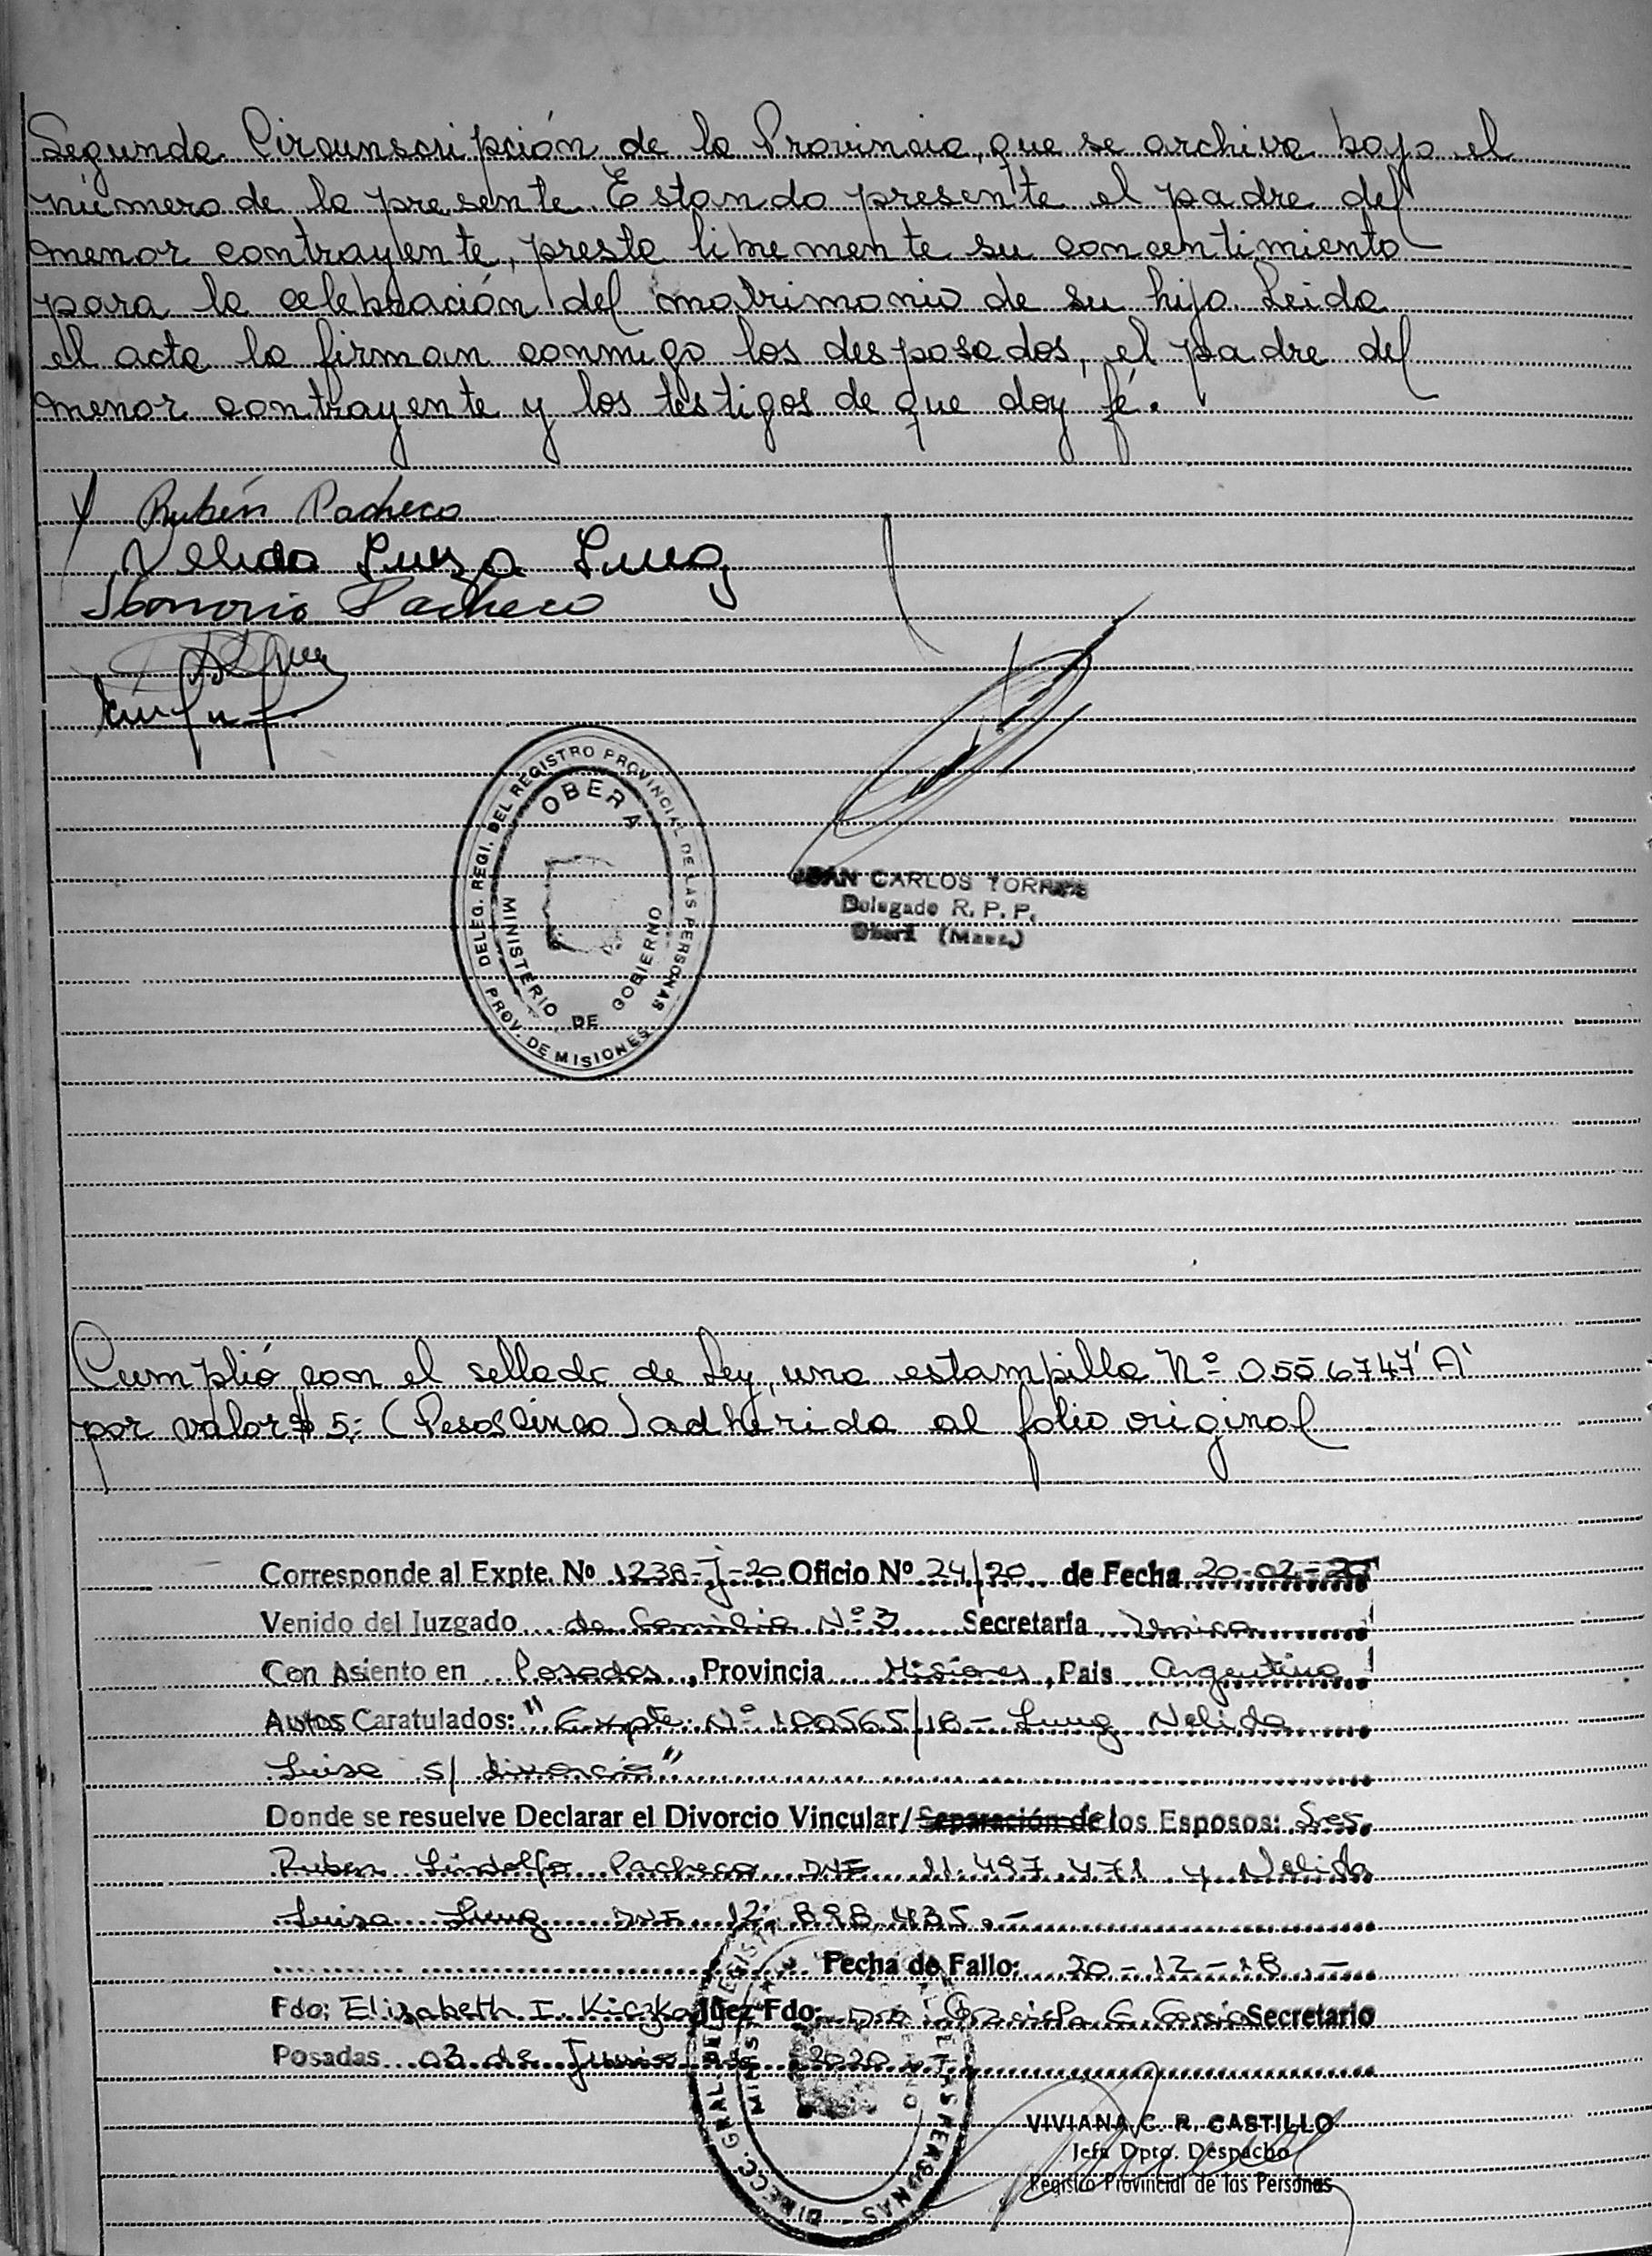 Segunda Circunscripción de la Provincia, que se archiva bajo el
número de la presente. Estando presente el padre del
menor contrayente, presta libremente su concentimiento
para la celebración del matrimonio de su hijo. Leida
el acta la firman conmigo los desposados, el padre del
menor contrayente y los testigos de que doy fé.
Rubén Pacheco
Nelida Luisa Lung
Honorio Pacheco
DELEG. REGI. DEL REGISTRO PROVINCIAL DE LAS PERSONAS
OBERA
MINISTERIO DE GOBIERNO
PROV. DE MISIONES
JUAN CARLOS TORRES
Delegado R. P. P.
Oberá (Mnes.)
Cumplió con el sellado de Ley, una estampilla Nº 0556747 "A"
por valor $ 5,- (Pesos Cinco) adherida al folio original
Corresponde al Expte. Nº 1238-J-20 Oficio Nº 24/20 de Fecha 20-02-20
Venido del Juzgado de Familia Nº 3 Secretaría Unica
Con Asiento en Posadas, Provincia Misiones, País Argentina
Autos Caratulados: "Expte. Nº 100565/18 - Lung Nelida
Luisa s/ divorcio"
Donde se resuelve Declarar el Divorcio Vincular/Separación de los Esposos: Sres.
Ruben Lindolfo Pacheco DNI 11.497.471 y Nelida
Luisa Lung DNI 12.898.435.-
Fecha de Fallo: 20-12-18.-
Fdo: Elizabeth I. Kiczka Juez Fdo: Dra Graciela G. Secretario
Posadas 03 de Junio 2020
DIRECC. GRAL. DEL REGIST PERSONAS
VIVIANA C. R. CASTILLO
Jefa Dpto. Despacho
Registro Provincial de las Personas